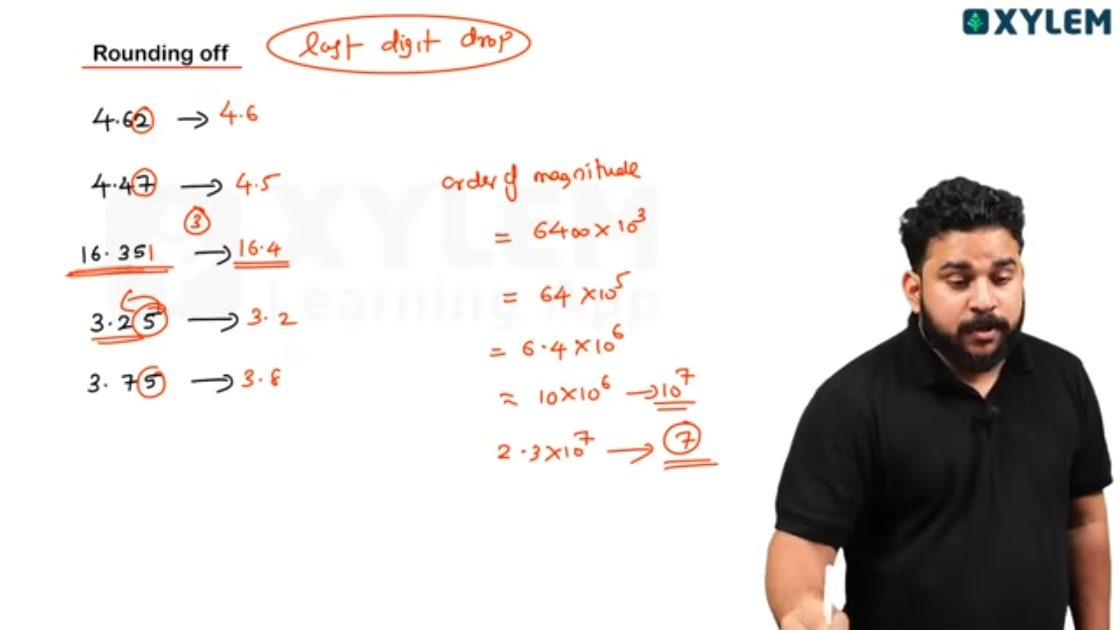 XYLEM
Rounding off
last digit drop
4.62 → 4.6
4.47 → 4.5
3
16.351 → 16.4
3.25 → 3.2
3.75 → 3.8
order of magnitude
= 6400×10³
= 64×10⁵
= 6.4×10⁶
≈ 10×10⁶ → 10⁷
2.3×10⁷ → 7
XYLEM
Learning App